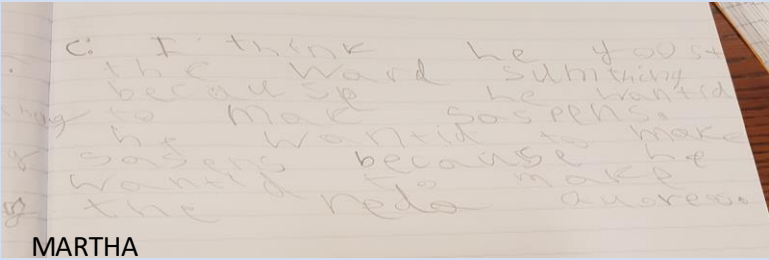 C. I think he yoost
the Ward sumthing
because he wantid
to mak saspens.
he wantid to make
sasens because he
wantid to make
the reda
MARTHA